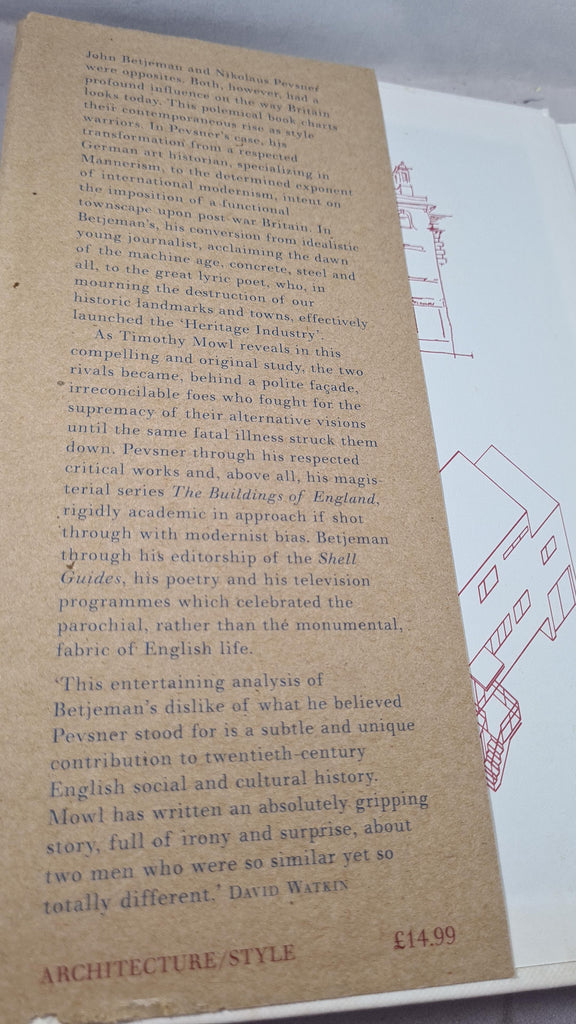 John Betjeman and Nikolaus Pevsner
were opposites. Both, however, had a
profound influence on the way Britain
looks today. This polemical book charts
their contemporaneous rise as style
warriors. In Pevsner's case, his
transformation from a respected
German art historian, specializing in
Mannerism, to the determined exponent
of international modernism, intent on
the imposition of a functional
townscape upon post-war Britain. In
Betjeman's, his conversion from idealistic
young journalist, acclaiming the dawn
of the machine age, concrete, steel and
all, to the great lyric poet, who, in
mourning the destruction of our
historic landmarks and towns, effectively
launched the 'Heritage Industry'.
As Timothy Mowl reveals in this
compelling and original study, the two
rivals became, behind a polite façade,
irreconcilable foes who fought for the
supremacy of their alternative visions
until the same fatal illness struck them
down. Pevsner through his respected
critical works and, above all, his magis-
terial series The Buildings of England,
rigidly academic in approach if shot
through with modernist bias. Betjeman
through his editorship of the Shell
Guides, his poetry and his television
programmes which celebrated the
parochial, rather than the monumental,
fabric of English life.
'This entertaining analysis of
Betjeman's dislike of what he believed
Pevsner stood for is a subtle and unique
contribution to twentieth-century
English social and cultural history.
Mowl has written an absolutely gripping
story, full of irony and surprise, about
two men who were so similar yet so
totally different.' DAVID WATKIN
ARCHITECTURE/STYLE £14.99